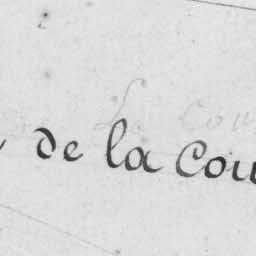 de la cou